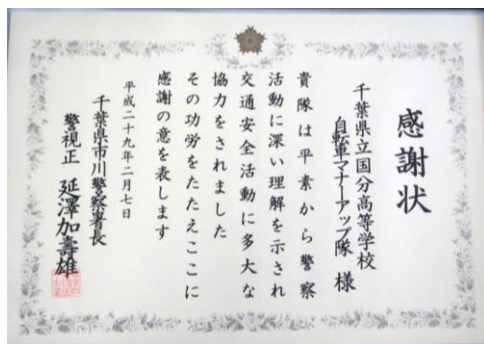 感謝状
千葉県立国分高等学校
自転車マナーアップ隊 様
貴隊は平素から警察
活動に深い理解を示され
交通安全活動に多大な
協力をされました
その功労をたたえここに
感謝の意を表します
平成二十九年二月七日
千葉県市川警察署長
警視正 延澤加壽雄